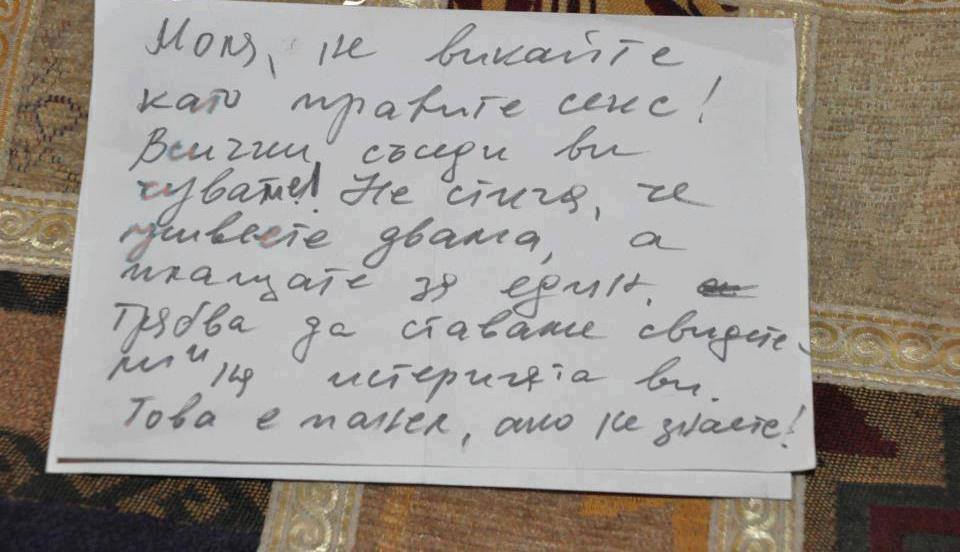 Моля, не викайте
като правите секс!
Всички съседи ви
чуваме! Не стига, че
живеете двама, а
плащате за един.
Трябва да ставаме свидете
ли и на истерията ви.
Това е панел, ако не знаете!